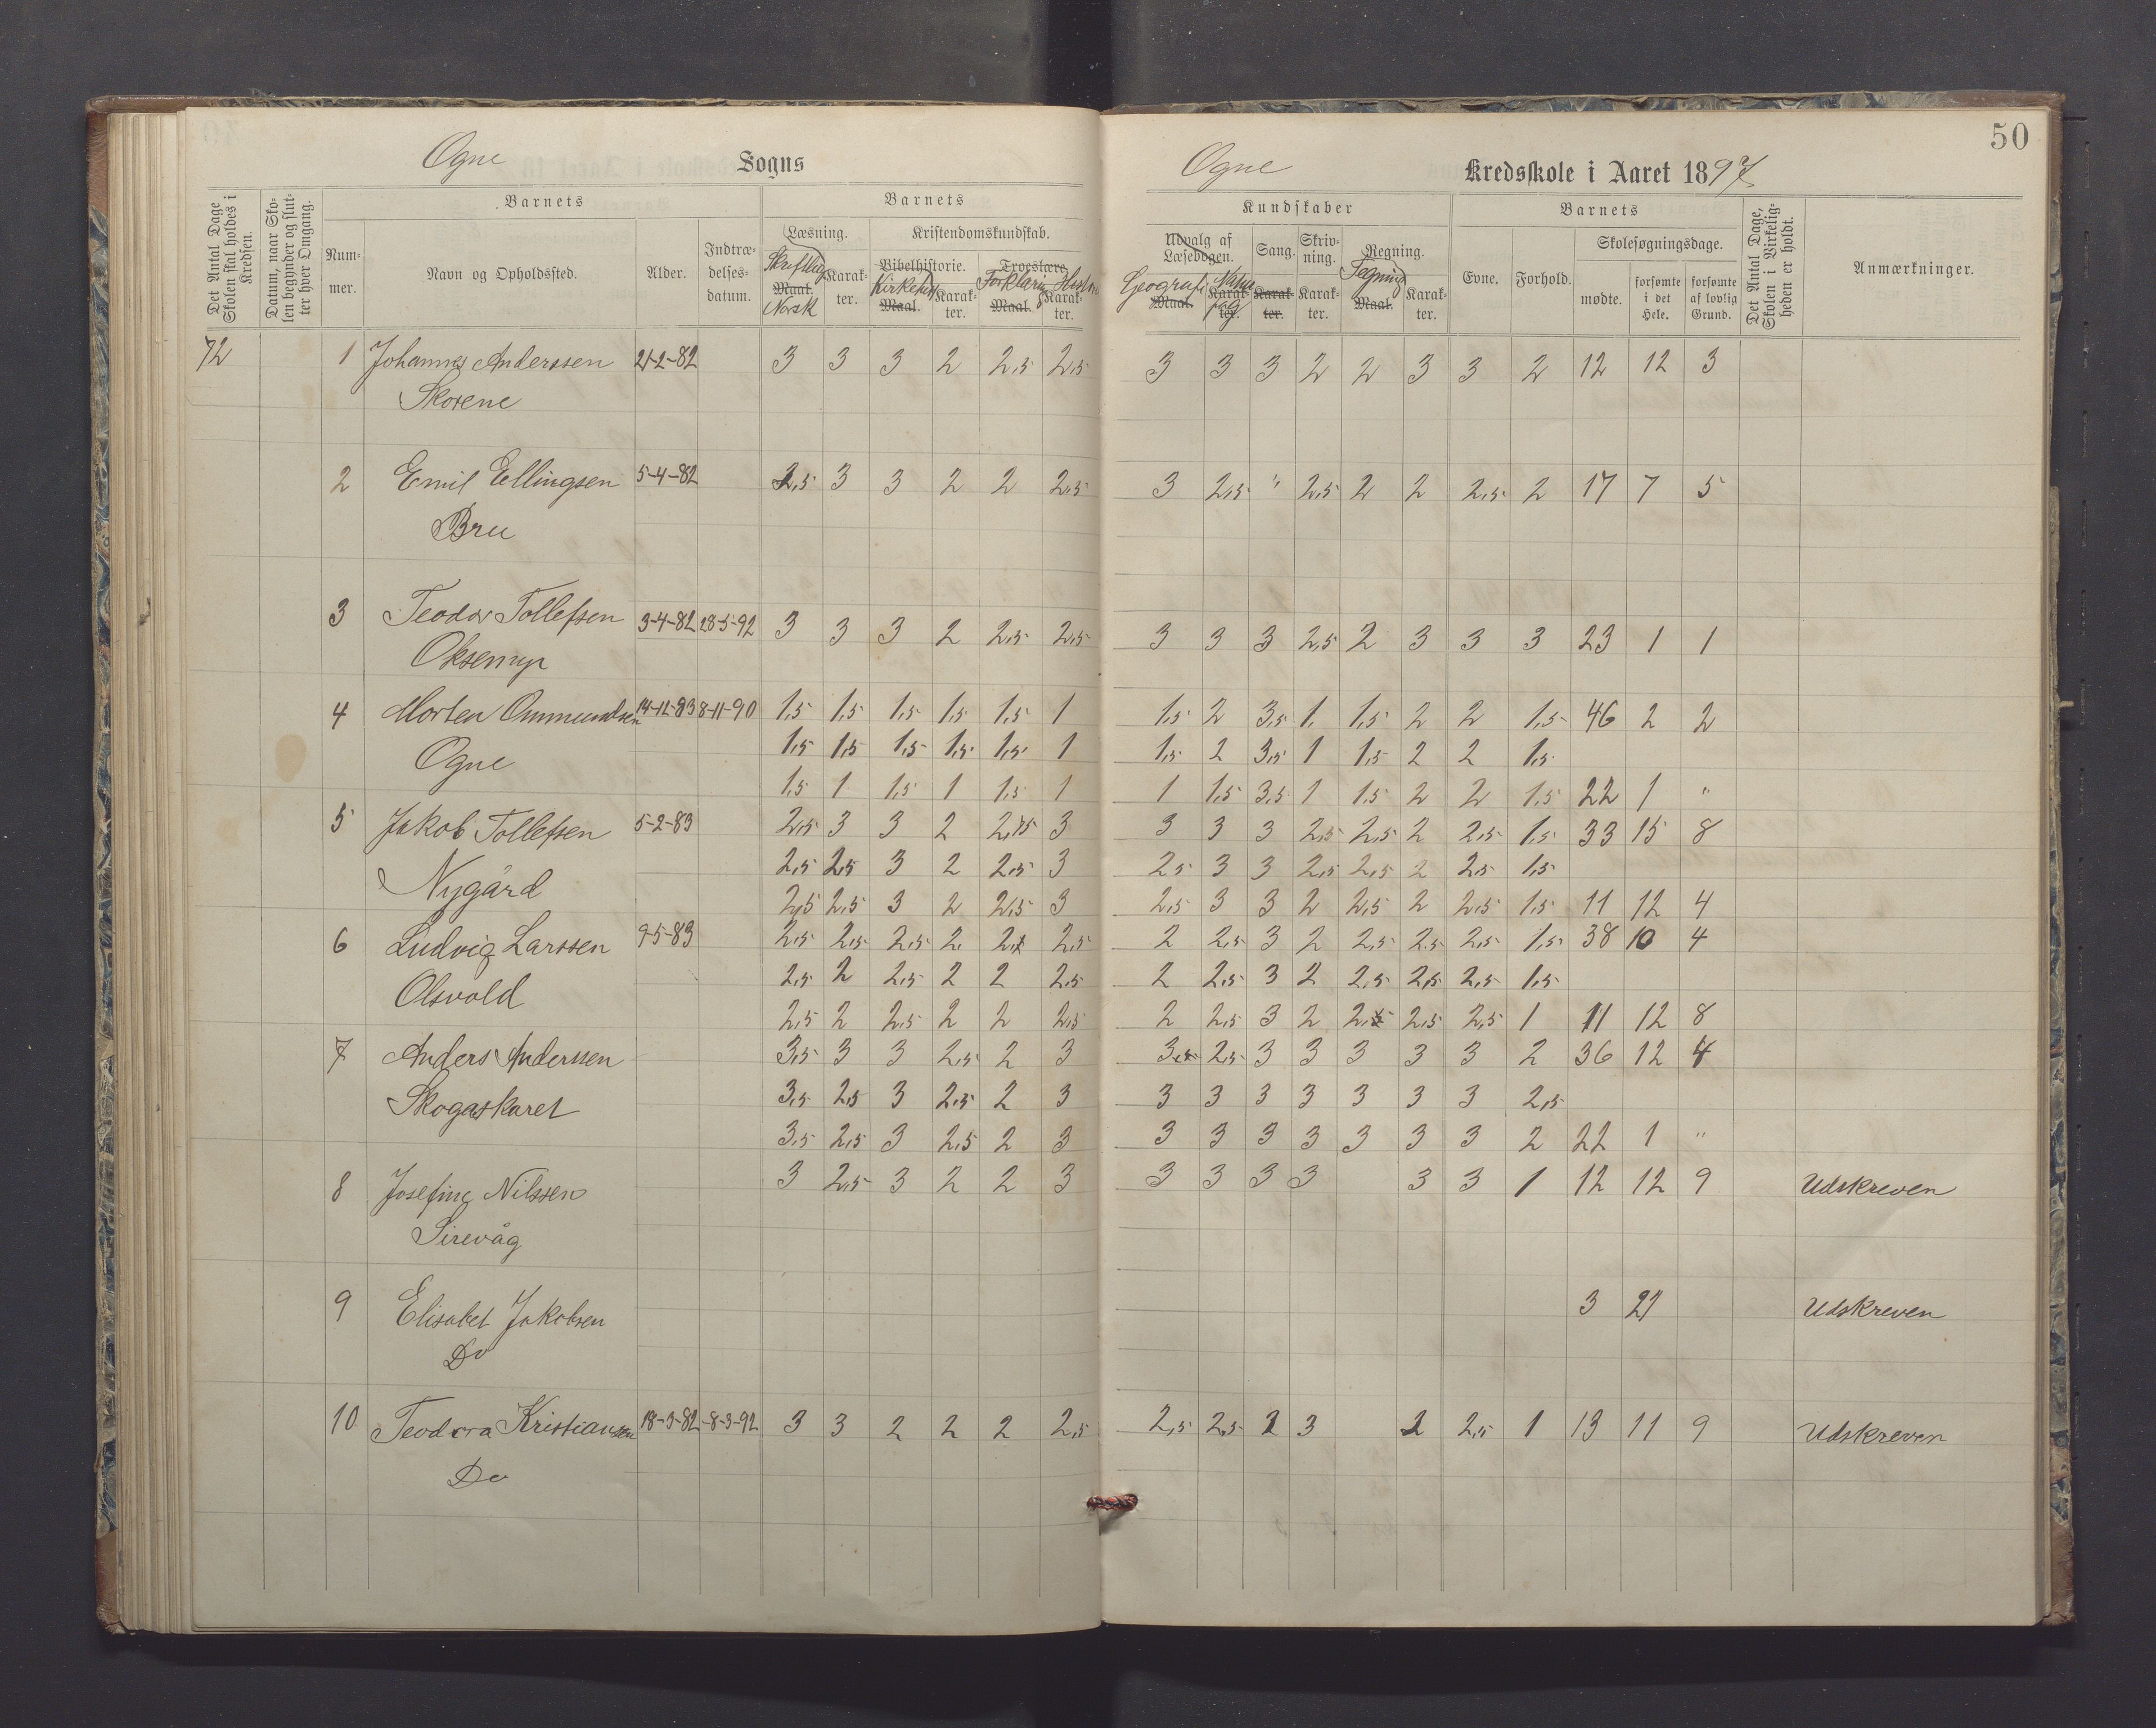 50
Ogne Sogns
Ogne Kredsskole i Aaret 1897
Det Antal Dage Skolen skal holdes i Kredsen.
Datum, naar Skolen begynder og slutter hver Omgang.
Barnets
Nummer.
Navn og Opholdssted.
Alder.
Indtrædelsesdatum.
Barnets
Læsning.
Skriftlig
Maal.
Norsk
Karakter.
Kristendomskundskab.
Bibelhistorie.
Maal.
Karakter.
Troeslære
Forklaring
Maal.
Karakter.
Kundskaber
Udvalg af Læsebogen.
Geografi
Maal.
Karakter.
Sang.
Karakter.
Skrivning.
Karakter.
Regning.
Tegning
Maal.
Karakter.
Barnets
Evne.
Forhold.
Skolesøgningsdage.
mødte.
forsømte i det Hele.
forsømte af lovlig Grund.
Det Antal Dage, Skolen i Virkeligheden er holdt.
Anmærkninger.
72 1 Johannes Anderssen 21-2-82 3 3 3 2 2,5 2,5 3 3 3 2 2 3 3 2 12 12 3
Skorene
2 Emil Ellingsen 5-4-82 2,5 3 3 2 2 2,5 3 2,5 " 2,5 2 2 2,5 2 17 7 5
Bru
3 Teodor Tollefsen 3-4-82 28-5-92 3 3 3 2 2,5 2,5 3 3 3 2,5 2 3 3 3 23 1 1
Oksemyr
4 Morten Ommundsen 14-12-83 8-11-90 1,5 1,5 1,5 1,5 1,5 1 1,5 2 3,5 1, 1,5 2 2 1,5 46 2 2
Ogne 1,5 1,5 1,5 1,5 1,5 1 1,5 2 3,5 1 1,5 2 2 1,5
1,5 1 1,5 1 1,5 1 1 1,5 3,5 1 1,5 2 2 1,5 22 1 "
5 Jakob Tollefsen 5-2-83 2,5 3 3 2 2,5 3 3 3 3 2,5 2,5 2 2,5 1,5 33 15 8
Nygård 2,5 2,5 3 2 2,5 3 2,5 3 3 2,5 2,5 2 2,5 1,5
2,5 2,5 3 2 2,5 3 2,5 3 3 2 2,5 2 2,5 1,5 11 12 4
6 Ludvig Larssen 9-5-83 2,5 2,5 2,5 2 2 2,5 2 2,5 3 2 2,5 2,5 2,5 1,5 38 10 4
Olsvold 2,5 2 2,5 2 2 2,5 2 2,5 3 2 2,5 2,5 2,5 1,5
2,5 2 2,5 2 2 2,5 2 2,5 3 2 2,5 2,5 2,5 1 11 12 8
7 Anders Anderssen 3,5 3 3 2,5 2 3 3,5 2,5 3 3 3 3 3 2 36 12 4
Skogaskaret 3,5 2,5 3 2,5 2 3 3 3 3 3 3 3 3 2,5
3,5 2,5 3 2,5 2 3 3 3 3 3 3 3 3 2 22 1 "
8 Josefine Nilssen 3 2,5 3 2 2 3 3 3 3 3 3 3 1 12 12 9 Udskreven
Sirevåg
9 Elisabet Jakobsen 3 21 Udskreven
Do
10 Teodora Kristiansen 18-3-82 8-3-92 3 3 2 2 2 2,5 2,5 2,5 2 3 2 2,5 1 13 11 9 Udskreven
Do